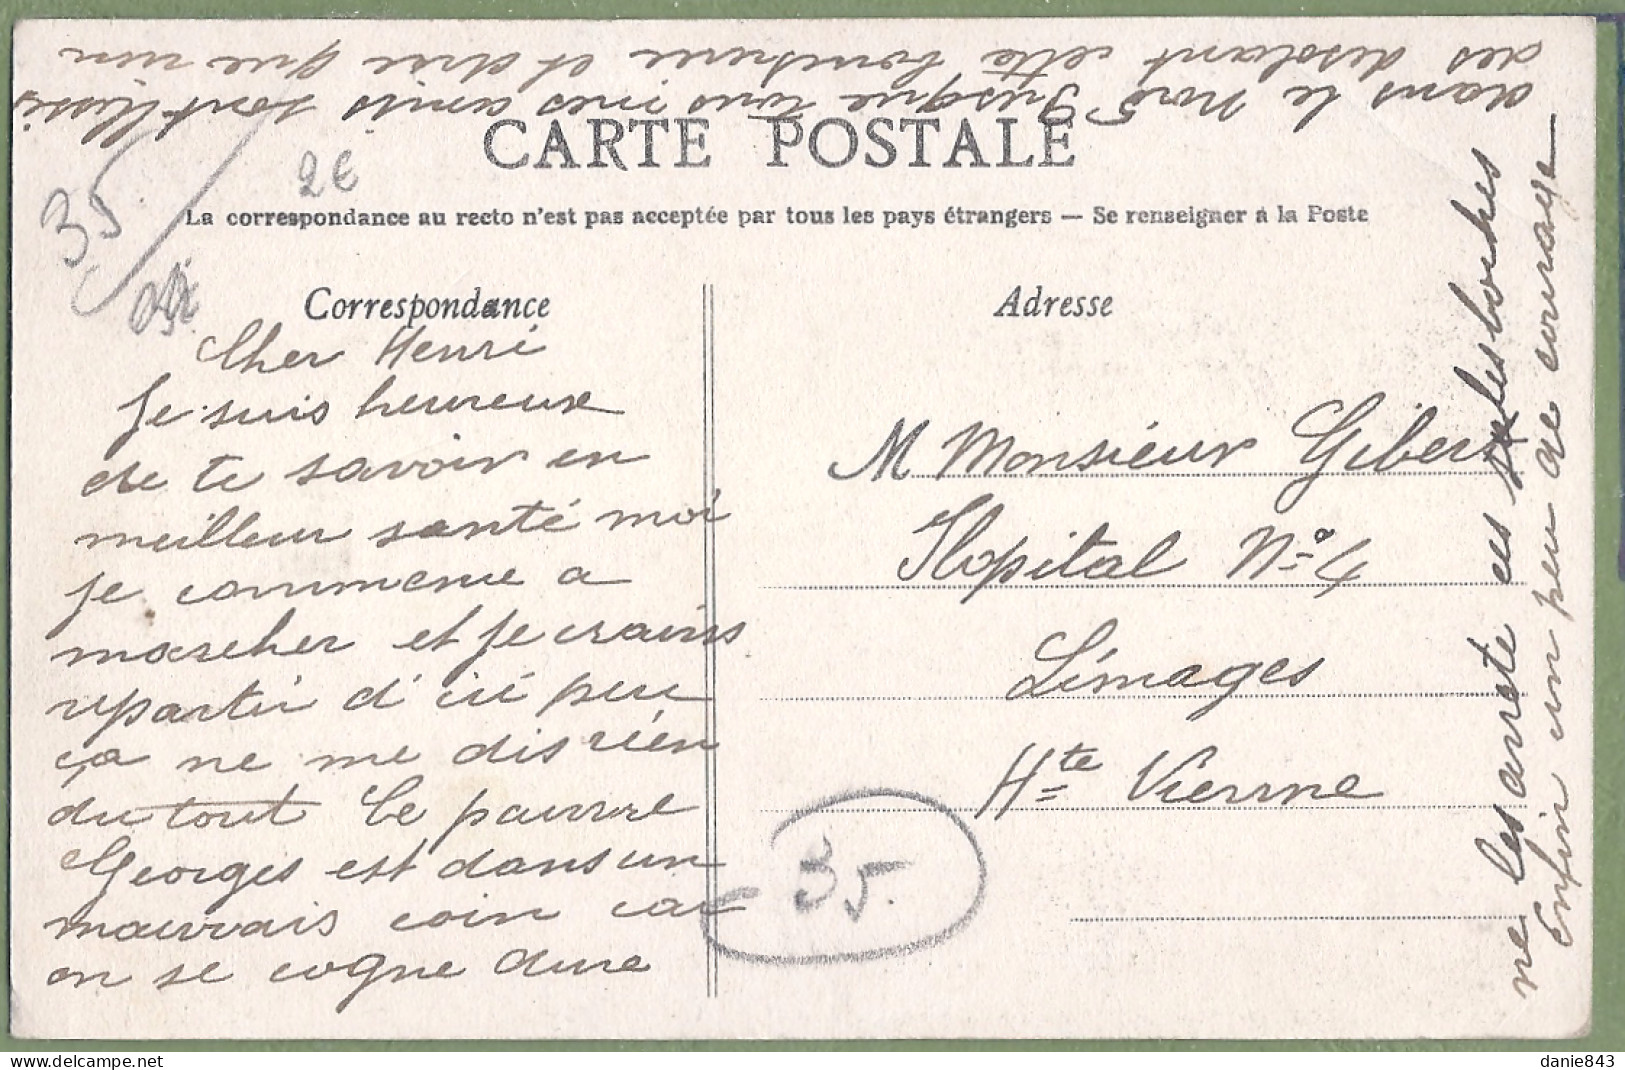 CARTE POSTALE
La correspondance au recto n'est pas acceptée par tous les pays étrangers — Se renseigner à la Poste
Correspondance
Adresse
35
2€
Cher Henri
Je suis heureux
de te savoir en
meilleur santé moi
je commence a
marcher et je crains
repartir d'ici peu
ça ne me dis rién
du tout le pauvre
Georges est dans un
mauvais coin car
on se cogne dure
dans le Nord Jusque tous mes amis sont
des desolant cette boucherie et dire que rien
ne les arrete ces les boches
Enfin un peu de courage
M Monsieur Gibert
Hopital No 4
Limoges
Hte Vienne
35.
danie843